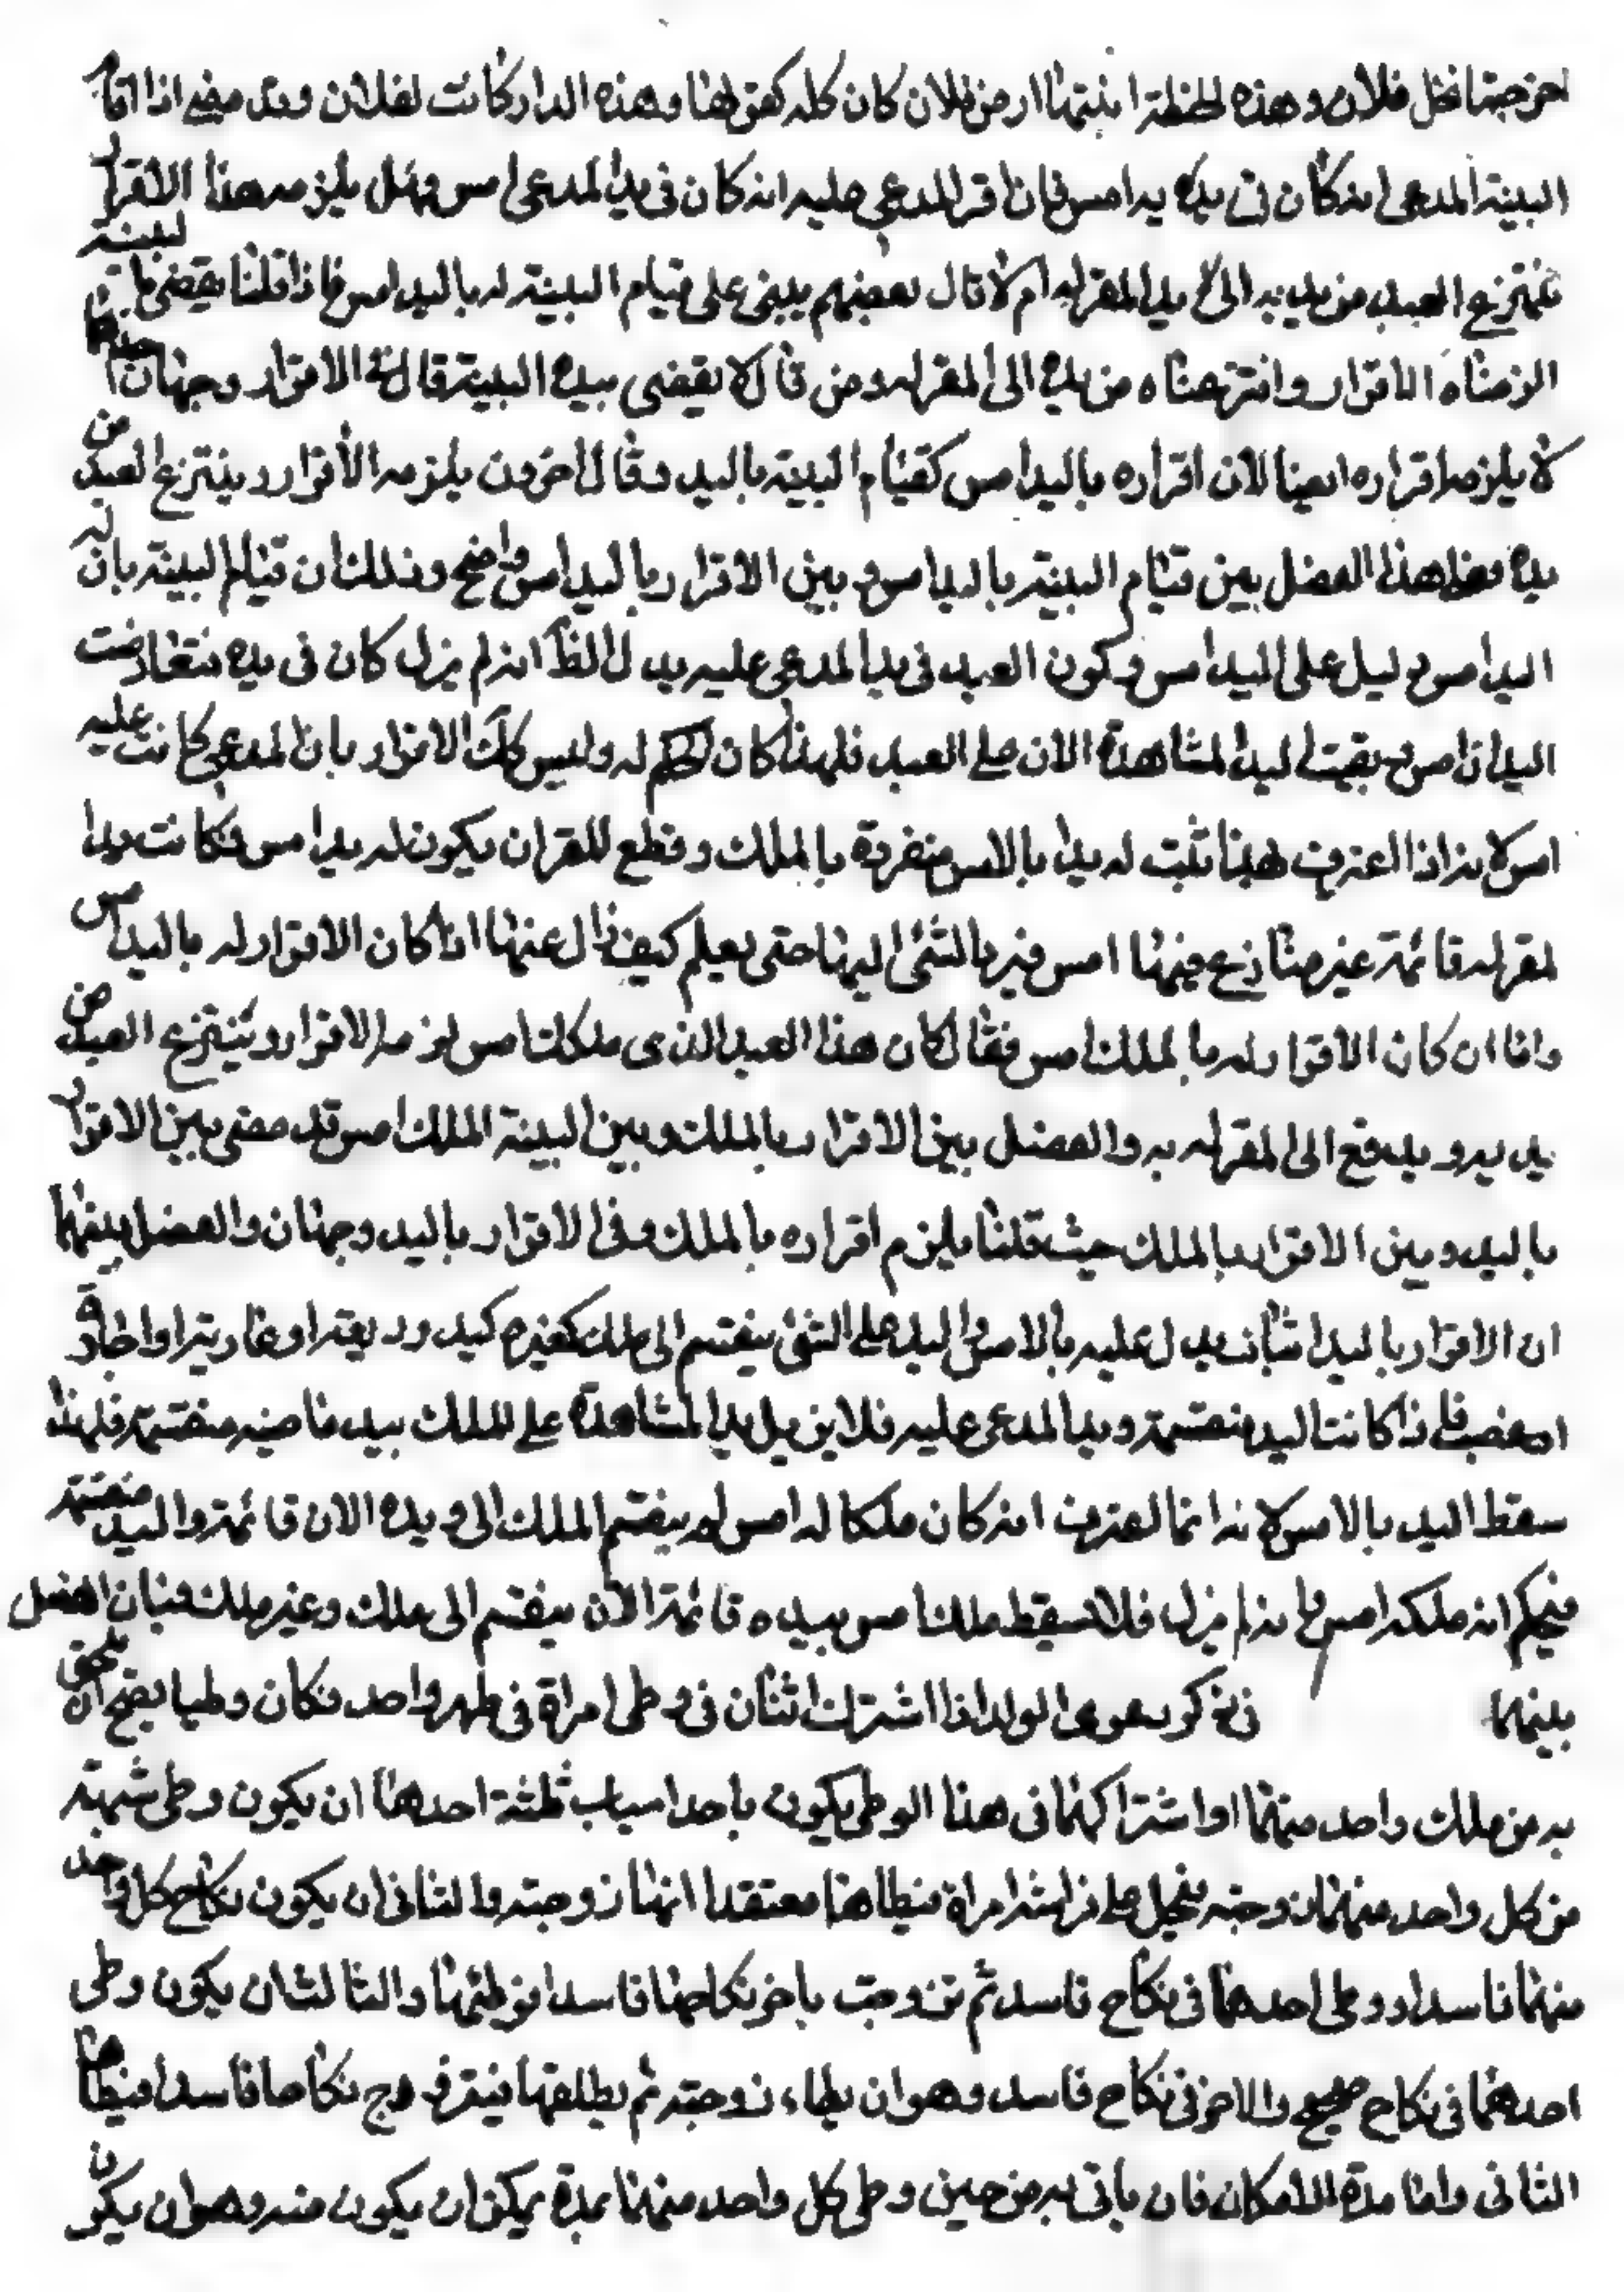 اخرجتها نخل فلان وهذه الحنطة انبتها ارض فلان كان كله كقولهنا وهذه الدار كانت لفلان وقد مضى اذا اقام
البينة المدعى انه كان فى يديه امس فان اقر المدعى عليه انه كان فى يد المدعى امس فهل يلزمه هذا الاقرار
فينتزع العبد من يديه الى يد المقر له ام لا قال بعضهم يبنى على قيام البينة له باليد امس فاذا قلنا يقضى بالبينة
الزمناه الاقرار وانتزعناه من يده الى المقر له ومن قال لا يقضى بيده البينة قال فى الاقرار وجهان احدهما
لا يلزمه اقراره ايضا لان اقراره باليد امس كقيام البينة باليد وقال اخرون يلزمه الاقرار وينتزع العبد من
يده فعلى هذا الفصل بين قيام البينة باليد امس وبين الاقرار باليد امس واضح وذلك ان قيام البينة بان له
اليد امس دليل على اليد امس وكون العبد فى يد المدعى عليه يدل الظ انه لم يزل كان فى يده فتعارضت
اليدان امس وبقيت اليد المشاهدة الان على العبد فلهذا كان الحكم له وليس كك الاقرار بان المدعى كانت عليه
امس لانه اذا اعترف لهيهنا ثبت له يدا بالامس منفردة بالملك وقطع للقران يكون له يد امس فكانت يد ا
لمقر له قائمة غير منازع فيها امس فيرد الشئ اليها حتى يعلم كيف زال عنها اذا كان الاقرار له باليد امس
واما ان كان الاقرار له بالملك امس فقال كان هذا العبد الذى ملكك امس لزمه الاقرار وينتزع العبد من
يديه ويدفع الى المقر له به والفصل بين الاقرار بالملك وبين البينة الملك امس قد مضى بين الاقرار
باليد وبين الاقرار بالملك حيث قلنا يلزم اقراره بالملك وفى الاقرار باليد وجهان والفصل بينهما
ان الاقرار باليد اثبات يدل عليه بالامس واليد على الشئ ينقسم الى ملك كغيره كيد وديعة او عارية او اجارة
او غصب فاذا كانت اليد منقسمة ويد المدعى عليه فلا يزيل يد المشاهدة على الملك بيد ماضيه منقسمة فلهذا
سقط اليد بالامس لانه انما اعترف انه كان ملكا له امس لم ينقسم الملك الى ويده الان قائمة واليد منقسمة
فيحكم انه ملكه امس وانه لم يزل فلا تسقط ملك امس بيده قائمة الان ينقسم الى ملك وغير ملك فبان الفصل
بينهما فى ذكر دعوى الولد اذا اشترك اثنان فى وطى امراة فى طهر واحد فكان وطيا يصح ان يلحق
به من ملك واحد منهما او اشتراكهما فى هذا الوطى يكون باحد اسباب ثلثة احدها ان يكون وطى شبهة
من كل واحد منهما زوجته فيجد على فراشه امراة فيطاها معتقدا انها زوجته والثانى ان يكون نكاح كل واحد
منهما فاسدا ووطى احدهما فى نكاح فاسد ثم تزوجت باخر نكاحها فاسدا فوطئها والثالث ان يكون وطى
احدهما فى نكاح صحيح والاخر فى نكاح فاسد وهو ان يطاء زوجته ثم يطلقها فيتزوج نكاحا فاسدا فيطاها
الثانى واما مدة الامكان فان ياتى به من حين وطى كل واحد منهما بمدة يمكن ان يكون منه وهو ان يكون